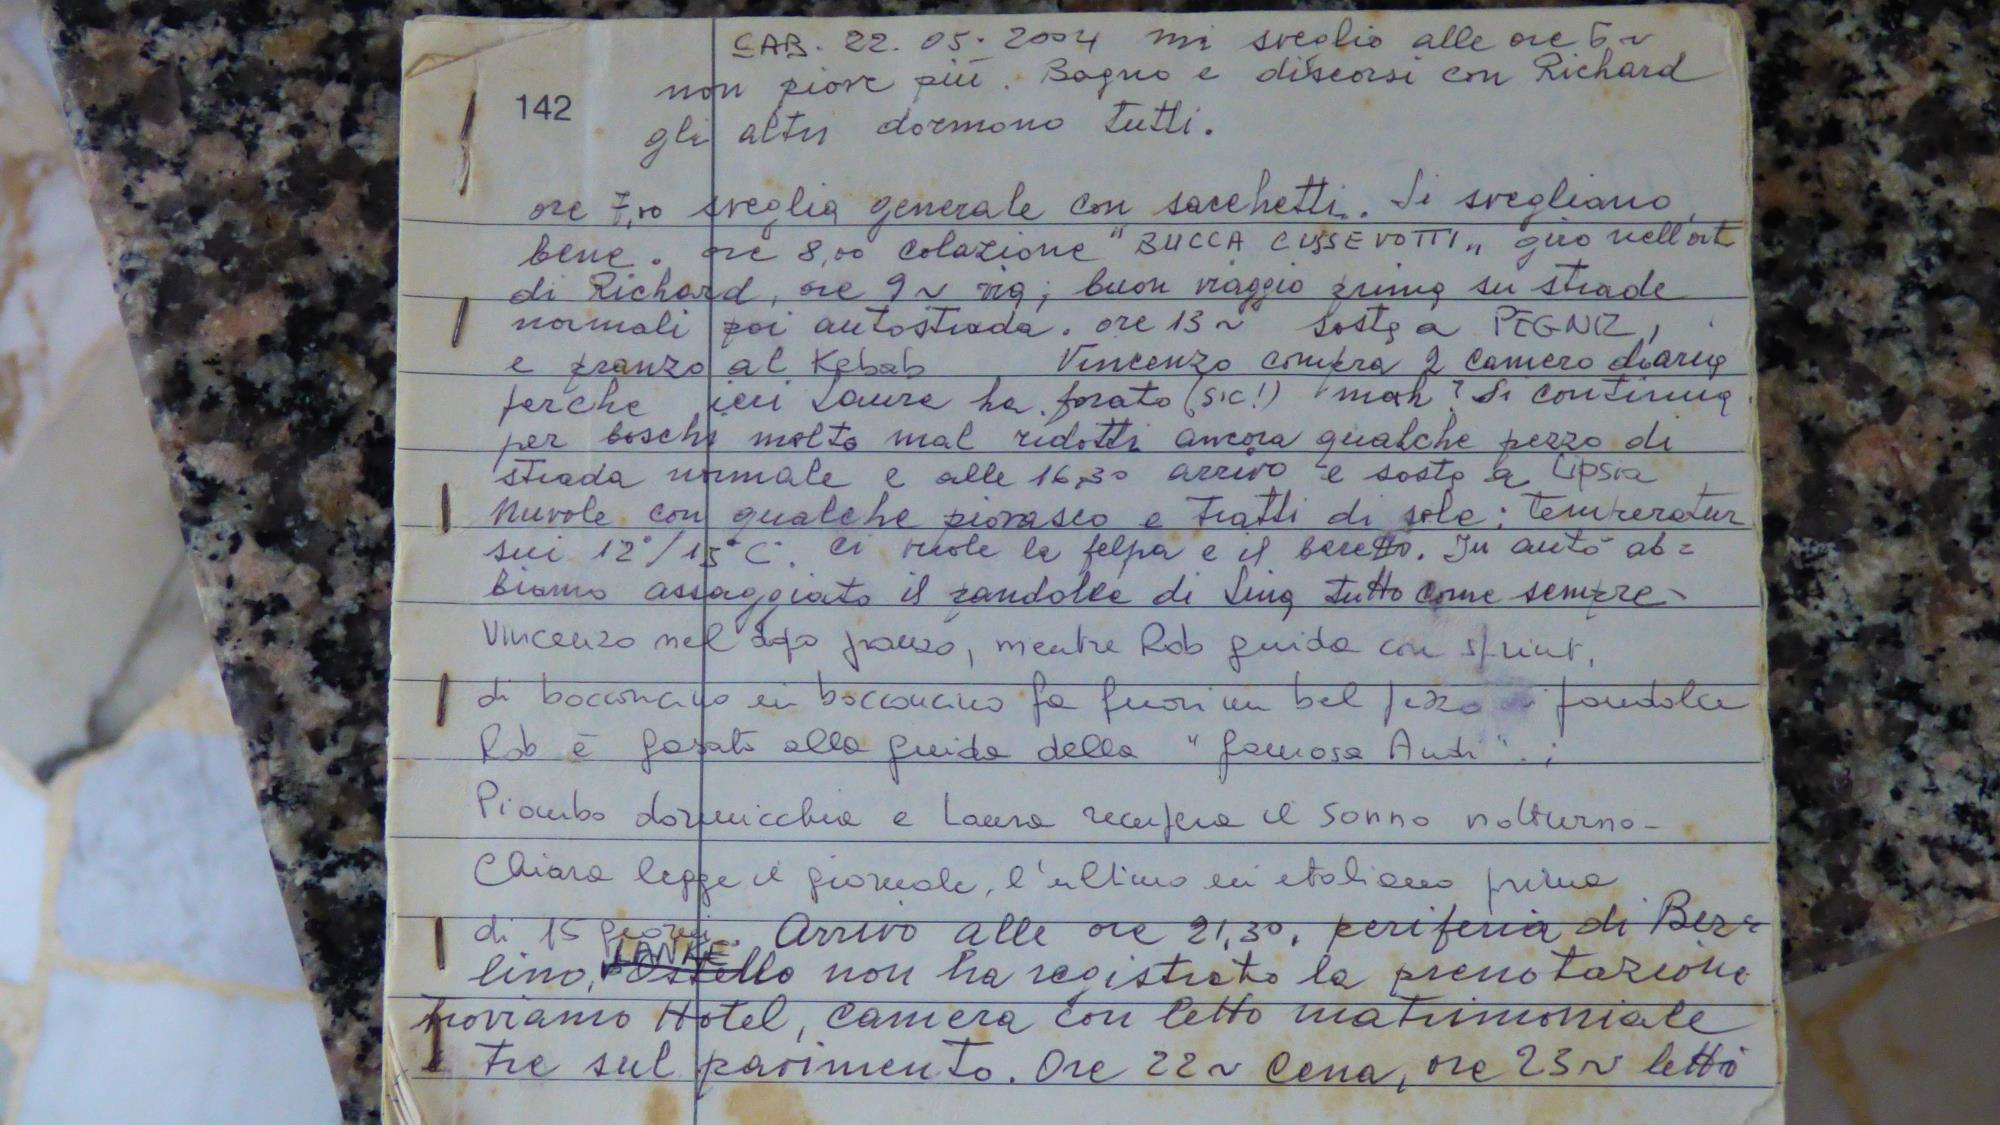 CAB. 22. 05. 2004 mi sveglio alle ore 6 ~
non piove più. Bagno e discorsi con Richard
142
gli altri dormono tutti.
ore 7,00 sveglia generale con sacchetti. Si svegliano
bene. ore 8,00 colazione " BUCCA CUSSEVOTTI „ giro nell'ort
di Richard, ore 9 ~ via; buon viaggio prima su strade
normali poi autostrada. ore 13 ~ sosta a PEGNIZ,
e pranzo al Kebab Vincenzo compra 2 camere d'aria
perche ieri Laura ha forato (sic!) mah? Si continua
per boschi molto mal ridotti ancora qualche pezzo di
strada normale e alle 16,30 arrivo e sosta a Lipsia
Nuvole con qualche piovasco e tratti di sole: temperatur
sui 12°/15°C. Ci vuole la felpa e il beretto. In auto ab=
biamo assaggiato il pandolce di Lina tutto come sempre-
Vincenzo nel dopo pranzo, mentre Rob guida con sprint,
di bocconcino in bocconcino fa fuori un bel pezzo di pandolce
Rob è gasato alla guida della "famosa Audi".;
Piombo dormicchia e Laura recupera il sonno notturno-
Chiara legge il giornale, l'ultimo in italiano prima
di 15 giorni. Arrivo alle ore 21,30, periferia di Ber=
LANKE
lino, Ostello non ha registrato la prenotazione
troviamo Hotel, camera con letto matrimoniale
e tre sul pavimento. Ore 22 ~ Cena, ore 23 ~ letto